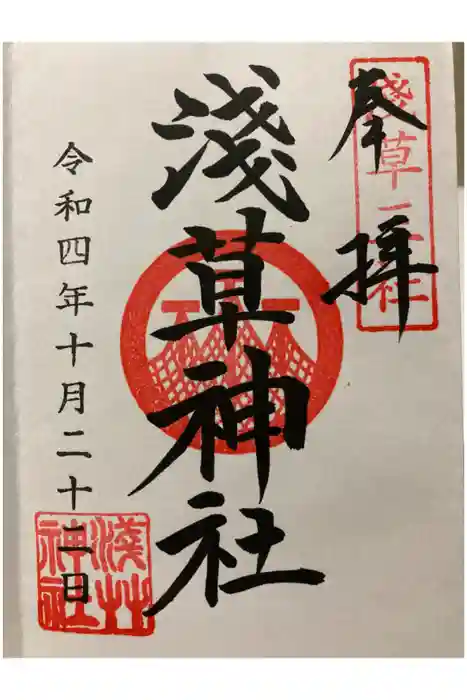 奉拝
淺草三社
淺草神社
令和四年十月二十二日
淺草神社